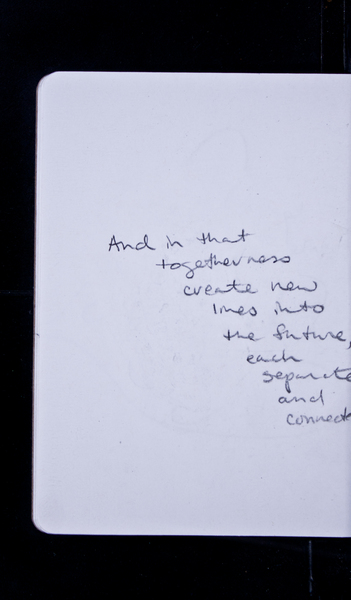 And in that
togetherness
create new
lines into
the future,
each
separate
and
connecte